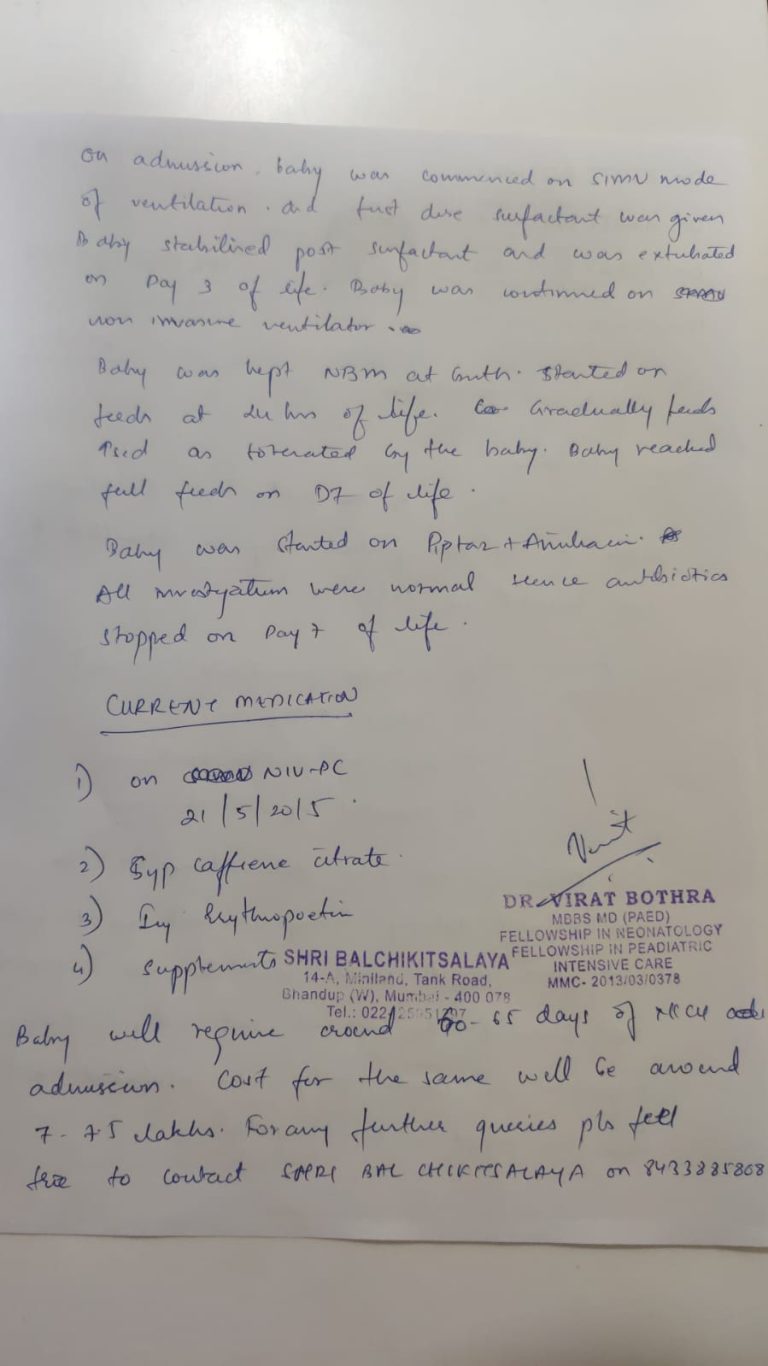 on admission. baby was commenced on SIMV mode
of ventilation. and first dose surfactant was given
Baby stabilized post surfactant and was extubated
on Day 3 of life. Baby was continued on
non invasive ventilator.
Baby was kept NBM at birth. Started on
feeds at 24 hrs of life. Gradually feeds
as tolerated by the baby. Baby reached
full feeds on D7 of life.
Baby was started on Piptaz + Amikacin.
All investigation were normal hence antibiotics
stopped on Day 7 of life.
CURRENT MEDICATION
1) on NIV-PC
21/5/20/5
2) Syp caffiene citrate
3) Inj Erythropoetin
4) Supplements
DR. VIRAT BOTHRA
MBBS MD (PAED)
FELLOWSHIP IN NEONATOLOGY
FELLOWSHIP IN PEADIATRIC
INTENSIVE CARE
MMC- 2013/03/0378
SHRI BALCHIKITSALAYA
14-A, Miniland, Tank Road,
Bhandup (W), Mumbai - 400 078
Tel.: 022
Baby will require around 60-65 days of NICU
admission. Cost for the same will be around
7-7.5 lakhs. For any further queries pls feel
free to contact SHRI BAL CHIKITSALAYA on 8433885868